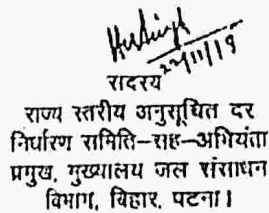 22/11/19
सदस्य
राज्य स्तरीय अनुसूचित दर
निर्धारण समिति–सह–अभियंता
प्रमुख, मुख्यालय जल संसाधन
विभाग, बिहार, पटना।